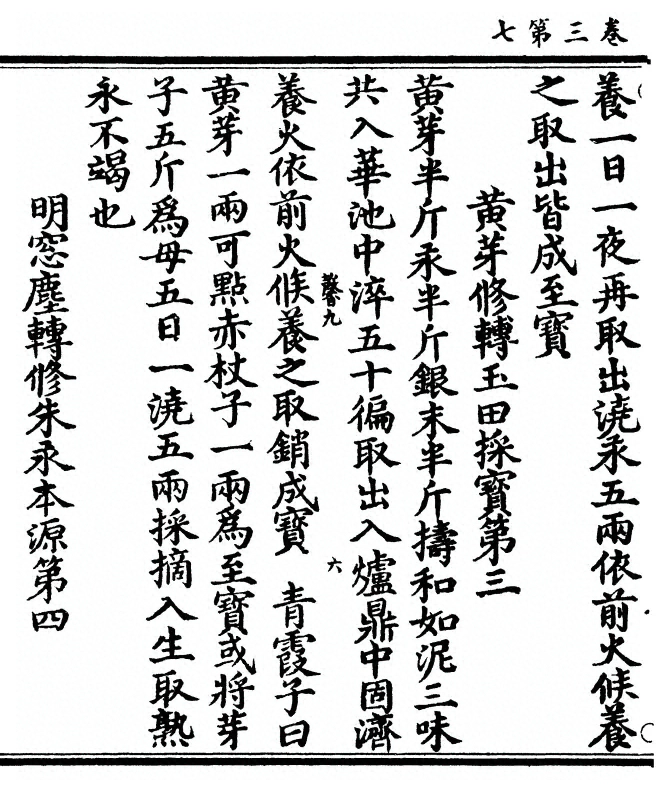 卷三第七
養一日一夜再取出澆汞五兩依前火候養
之取出皆成至寶
黃芽修轉玉田採寶第三
黃芽半斤汞半斤銀末半斤擣和如泥三味
共入華池中淬五十徧取出入爐鼎中固濟
馨九 六
養火依前火候養之取銷成寶 青霞子曰
黃芽一兩可點赤杖子一兩爲至寶或將芽
子五斤爲母五日一澆五兩採摘入生取熟
永不竭也
明窓塵轉修朱汞本源第四